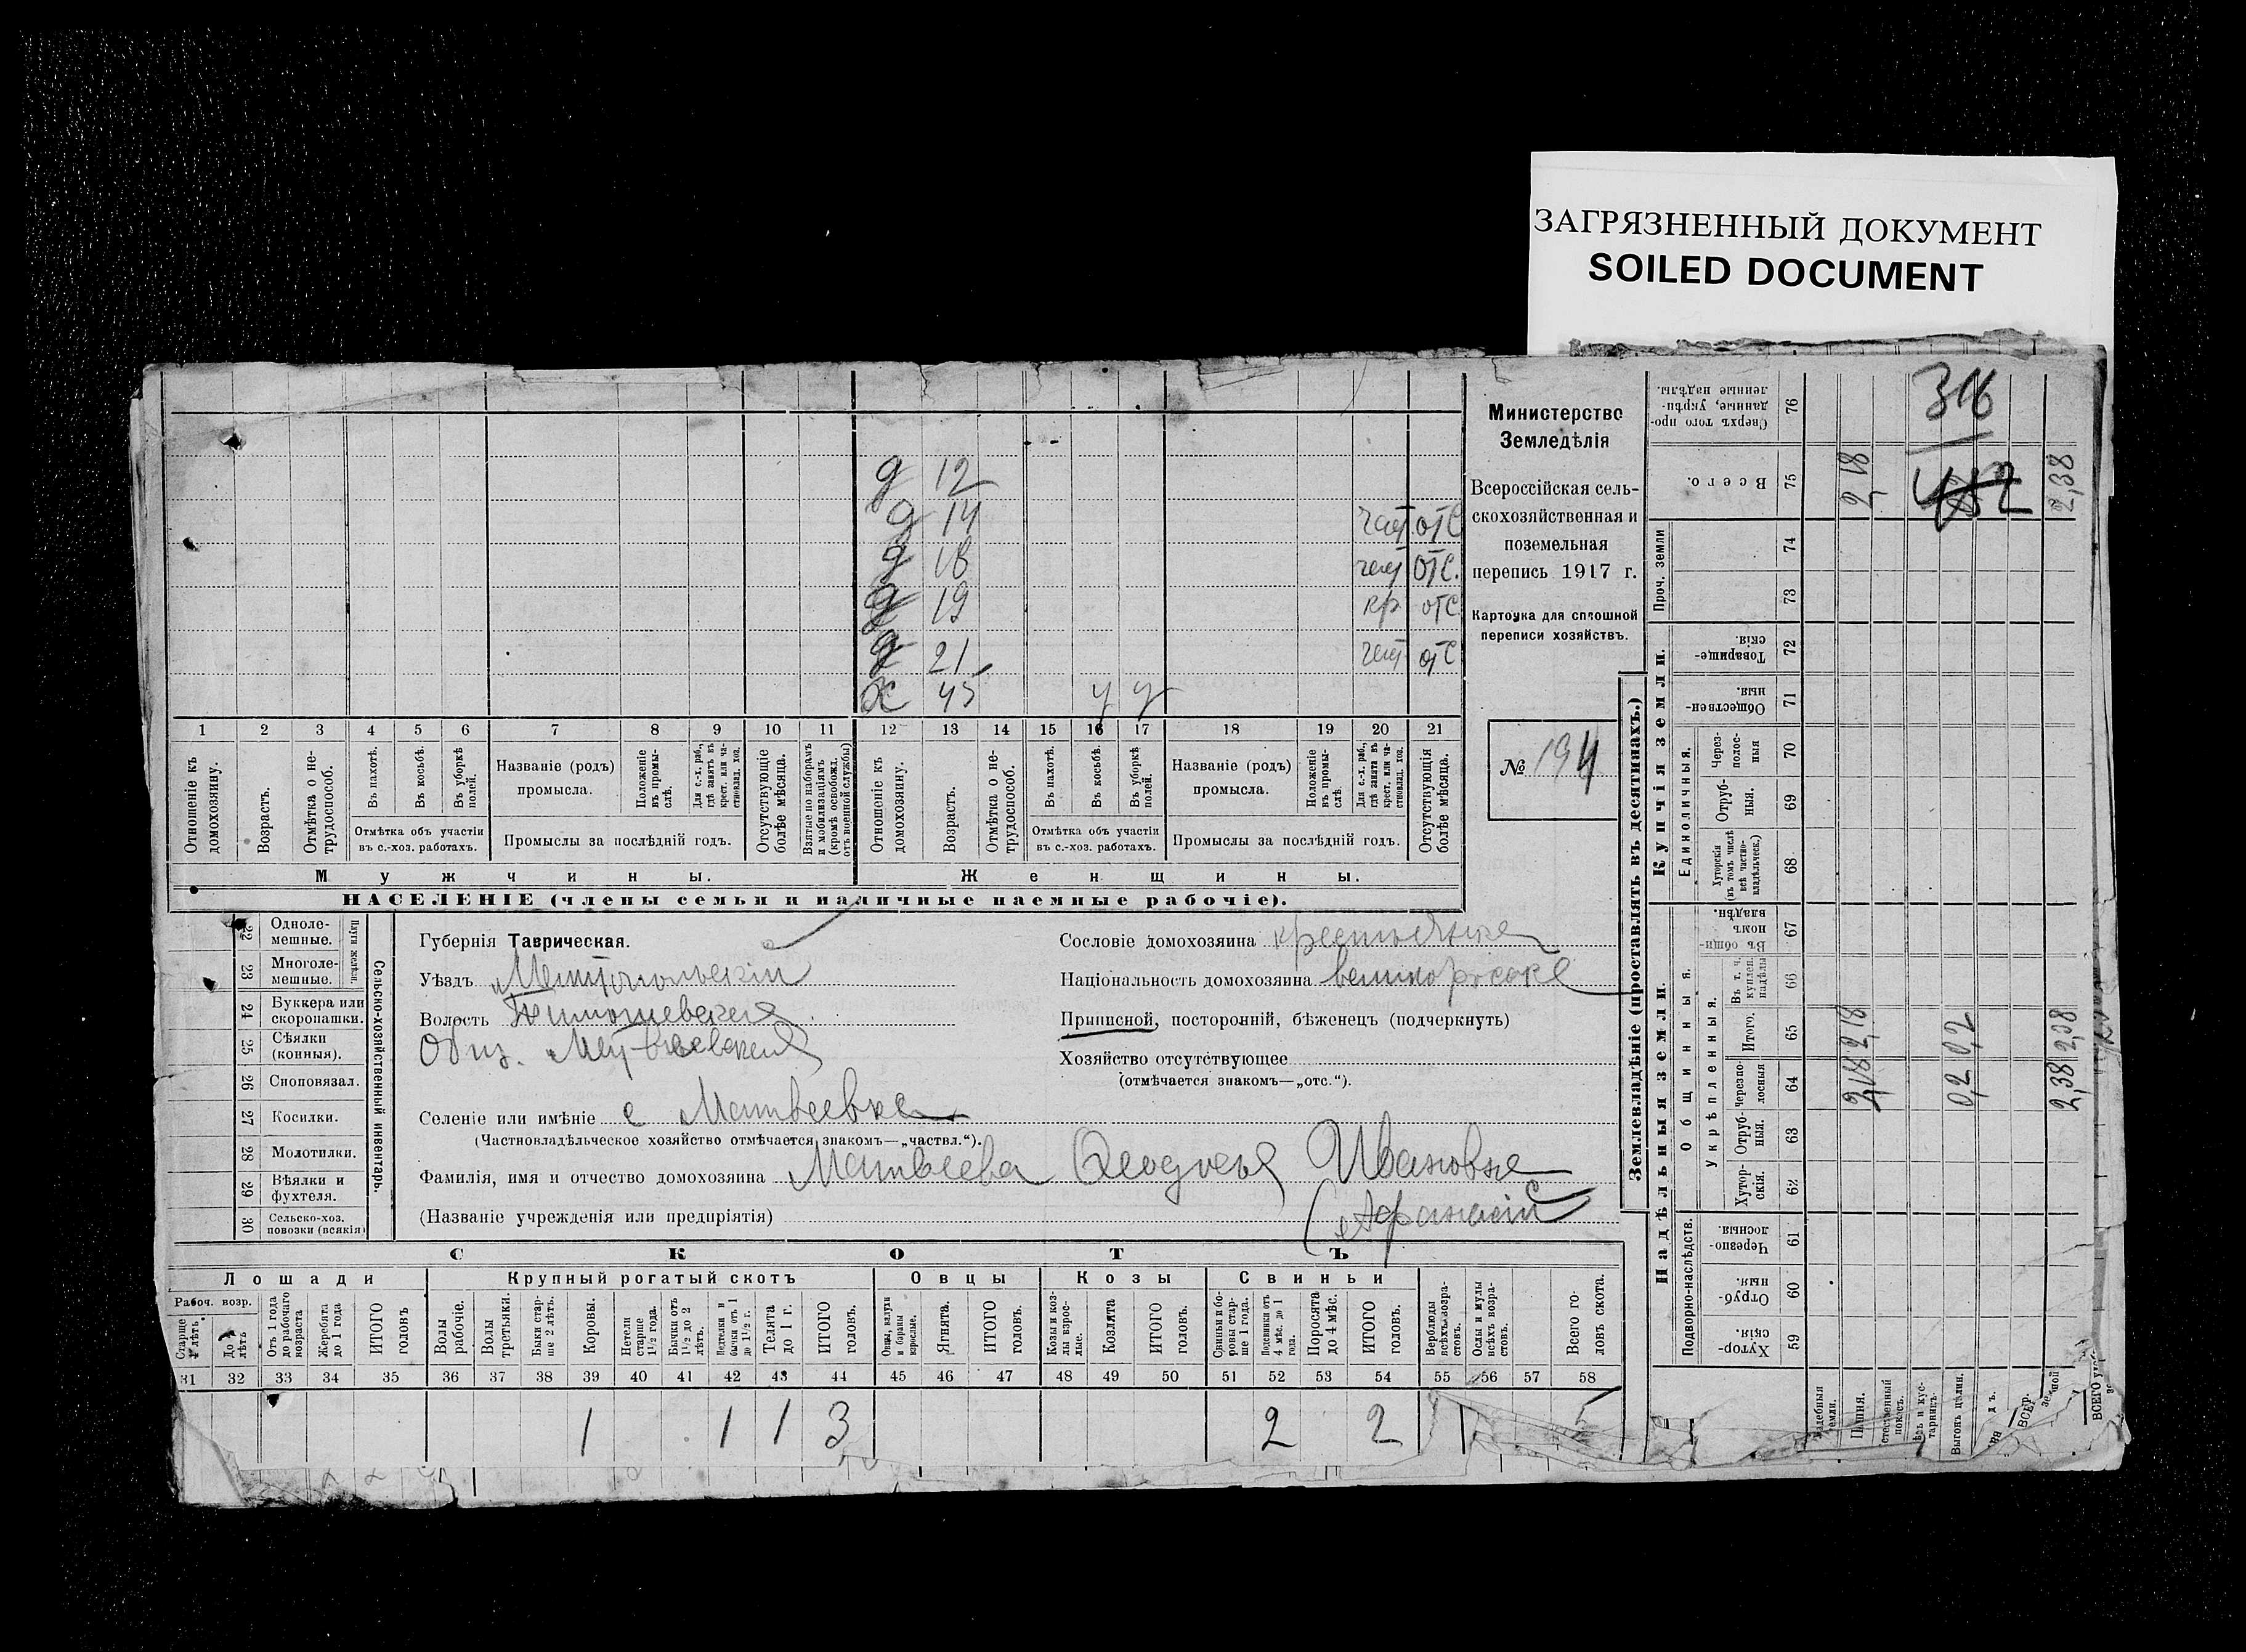 ЗАГРЯЗНЕННЫЙ ДОКУМЕНТ
SOILED DOCUMENT
Министерство
Земледѣлія
Всероссійская сель-
скохозяйственная и
поземельная
перепись 1917 г.
Карточка для сплошной
переписи хозяйствъ.
№ 194
д 12
д 14 част отс
д 18 част отс.
д 19 кр отс
д 21 част отс
ж 45 у у
1 2 3 4 5 6 7 8 9 10 11 12 13 14 15 16 17 18 19 20 21
Отношеніе къ домохозяину.
Возрастъ.
Отмѣтка о не-трудоспособ.
Въ пахотѣ.
Въ косьбѣ.
Въ уборкѣ полей.
Отмѣтка объ участіи
въ с.-хоз. работахъ.
Названіе (родъ)
промысла.
Положеніе въ промы-слѣ.
Для с.-х. раб., гдѣ занятъ въ крест. или ча-стновлад. хоз.
Промыслы за послѣдній годъ.
Отсутствующіе болѣе мѣсяца.
Взятые по наборамъ и мобилизаціямъ (кромѣ освобожд. отъ военной службы)
Отношеніе къ домохозяину.
Возрастъ.
Отмѣтка о не-трудоспособ.
Въ пахотѣ.
Въ косьбѣ.
Въ уборкѣ полей.
Отмѣтка объ участіи
въ с.-хоз. работахъ.
Названіе (родъ)
промысла.
Положеніе въ промы-слѣ.
Для с.-х. раб., гдѣ занята въ крест. или ча-стновлад. хоз.
Промыслы за послѣдній годъ.
Отсутствующія болѣе мѣсяца.
Мужчины. Женщины.
НАСЕЛЕНІЕ (члены семьи и наличные наемные рабочіе).
Сельско-хозяйственный инвентарь.
22 Одноле-мешные.
23 Многоле-мешные.
24 Буккера или скоропашки.
25 Сѣялки (конныя).
26 Сноповязал.
27 Косилки.
28 Молотилки.
29 Вѣялки и фухтеля.
30 Сельско-хоз. повозки (всякія)
Губернія Таврическая.
Уѣздъ Мелитопольскій
Волость Тимошевская
Общ. Матвѣевская
Селеніе или имѣніе с Матвеевка
(Частновладѣльческое хозяйство отмѣчается знакомъ—„частвл.“).
Фамилія, имя и отчество домохозяина Матвеева Ивановна
(Названіе учрежденія или предпріятія) (Афанасій
Сословіе домохозяина крестьянка
Національность домохозяина великоросска
Приписной, посторонній, бѣженецъ (подчеркнуть)
Хозяйство отсутствующее
(отмѣчается знакомъ—„отс.“).
СКОТЪ
Лошади Крупный рогатый скотъ Овцы Козы Свиньи
Рабоч. возр.
До лѣтъ
Отъ 1 года до рабочаго возраста
Жеребята до 1 года
ИТОГО головъ
Волы рабочіе.
Волы третьяки.
Быки стар-ше 2 лѣтъ.
Коровы.
Нетели старше 1½ года.
Бычки отъ 1½ до 2 лѣтъ.
Телята до 1 г.
ИТОГО головъ.
Ягнята.
ИТОГО головъ.
Козы и коз-лы взрос-лые.
Козлята
ИТОГО головъ.
Свиньи и бо-ровы стар-ше 1 года.
Подсвинки отъ 4 мѣс. до 1 года.
Поросята до 4 мѣс.
ИТОГО головъ.
Верблюды всѣхъ возра-стовъ.
Ослы и мулы всѣхъ возра-стовъ.
Всего го-ловъ скота.
31 32 33 34 35 36 37 38 39 40 41 42 43 44 45 46 47 48 49 50 51 52 53 54 55 56 57 58
1 1 1 3 2 2 5
Землевладѣніе (проставлять въ десятинахъ.)
Надѣльныя земли. Купчія земли. Проч. земли
Подворно-наслѣдств. Общинныя. Единоличныя.
Укрѣпленныя.
59 Хутор-скія.
60 Отруб-ныя.
61 Черезпо-лосныя.
62 Хутор-скія.
63 Отруб-ныя.
64 Черезпо-лосныя
65 Итого.
66 Въ т. ч. куплен. надѣлы
67 Въ общи-номъ владѣн.
68 Хуторскія (въ томъ числѣ всѣ частно-владѣльческ.)
69 Отруб-ныя.
70 Через-полос-ныя
71 Обществен-ныя.
72 Товарище-скія.
73
74
75 Всего.
76 Сверхъ того про-данные, укрѣп-ленные надѣлы.
Пашня.
Выгонъ цѣлин.
2,18 2,18 2,18
0,2 0,2
2,38 2,38 2,38
316